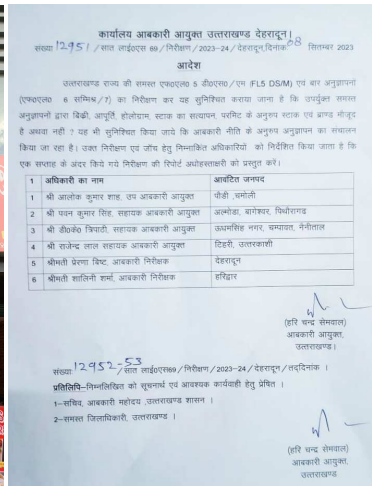 कार्यालय आबकारी आयुक्त उत्तराखण्ड देहरादून।
संख्या 12951 / सात लाई०एस 69 / निरीक्षण / 2023-24 / देहरादून,दिनांक 08 सितम्बर 2023
आदेश
उत्तराखण्ड राज्य की समस्त एफ०एल० 5 डी०एस० / एम (FL5 DS/M) एवं बार अनुज्ञापनों
(एफ०एल० 6 सम्मिश्र / 7) का निरीक्षण कर यह सुनिश्चित कराया जाना है कि उपर्युक्त समस्त
अनुज्ञापनों द्वारा बिक्री, आपूर्ति, होलोग्राम, स्टाक का सत्यापन, परमिट के अनुरुप स्टाक एवं ब्राण्ड मौजूद
है अथवा नहीं ? यह भी सुनिश्चित किया जाये कि आबकारी नीति के अनुरुप अनुज्ञापन का संचालन
किया जा रहा है। उक्त निरीक्षण एवं जाँच हेतु निम्नांकित अधिकारियों को निर्देशित किया जाता है कि
एक सप्ताह के अंदर किये गये निरीक्षण की रिपोर्ट अधोहस्ताक्षरी को प्रस्तुत करें।
1 अधिकारी का नाम आवंटित जनपद
1 श्री आलोक कुमार शाह, उप आबकारी आयुक्त पौडी ,चमोली
2 श्री पवन कुमार सिंह, सहायक आबकारी आयुक्त अल्मोडा, बागेश्वर, पिथौरागढ
3 श्री डी०के० त्रिपाठी, सहायक आबकारी आयुक्त ऊधमसिंह नगर, चम्पावत, नैनीताल
4 श्री राजेन्द्र लाल सहायक आबकारी आयुक्त टिहरी, उत्तरकाशी
5 श्रीमती प्रेरणा बिष्ट, आबकारी निरीक्षक देहरादून
6 श्रीमती शालिनी शर्मा, आबकारी निरीक्षक हरिद्वार
(हरि चन्द्र सेमवाल)
आबकारी आयुक्त,
उत्तराखण्ड।
संख्या 12952-53 / सात लाई०एस69 / निरीक्षण / 2023-24 / देहरादून / तद्दिनांक ।
प्रतिलिपि–निम्नलिखित को सूचनार्थ एवं आवश्यक कार्यवाही हेतु प्रेषित ।
1–सचिव, आबकारी महोदय ,उत्तराखण्ड शासन ।
2–समस्त जिलाधिकारी, उत्तराखण्ड ।
(हरि चन्द्र सेमवाल)
आबकारी आयुक्त,
उत्तराखण्ड